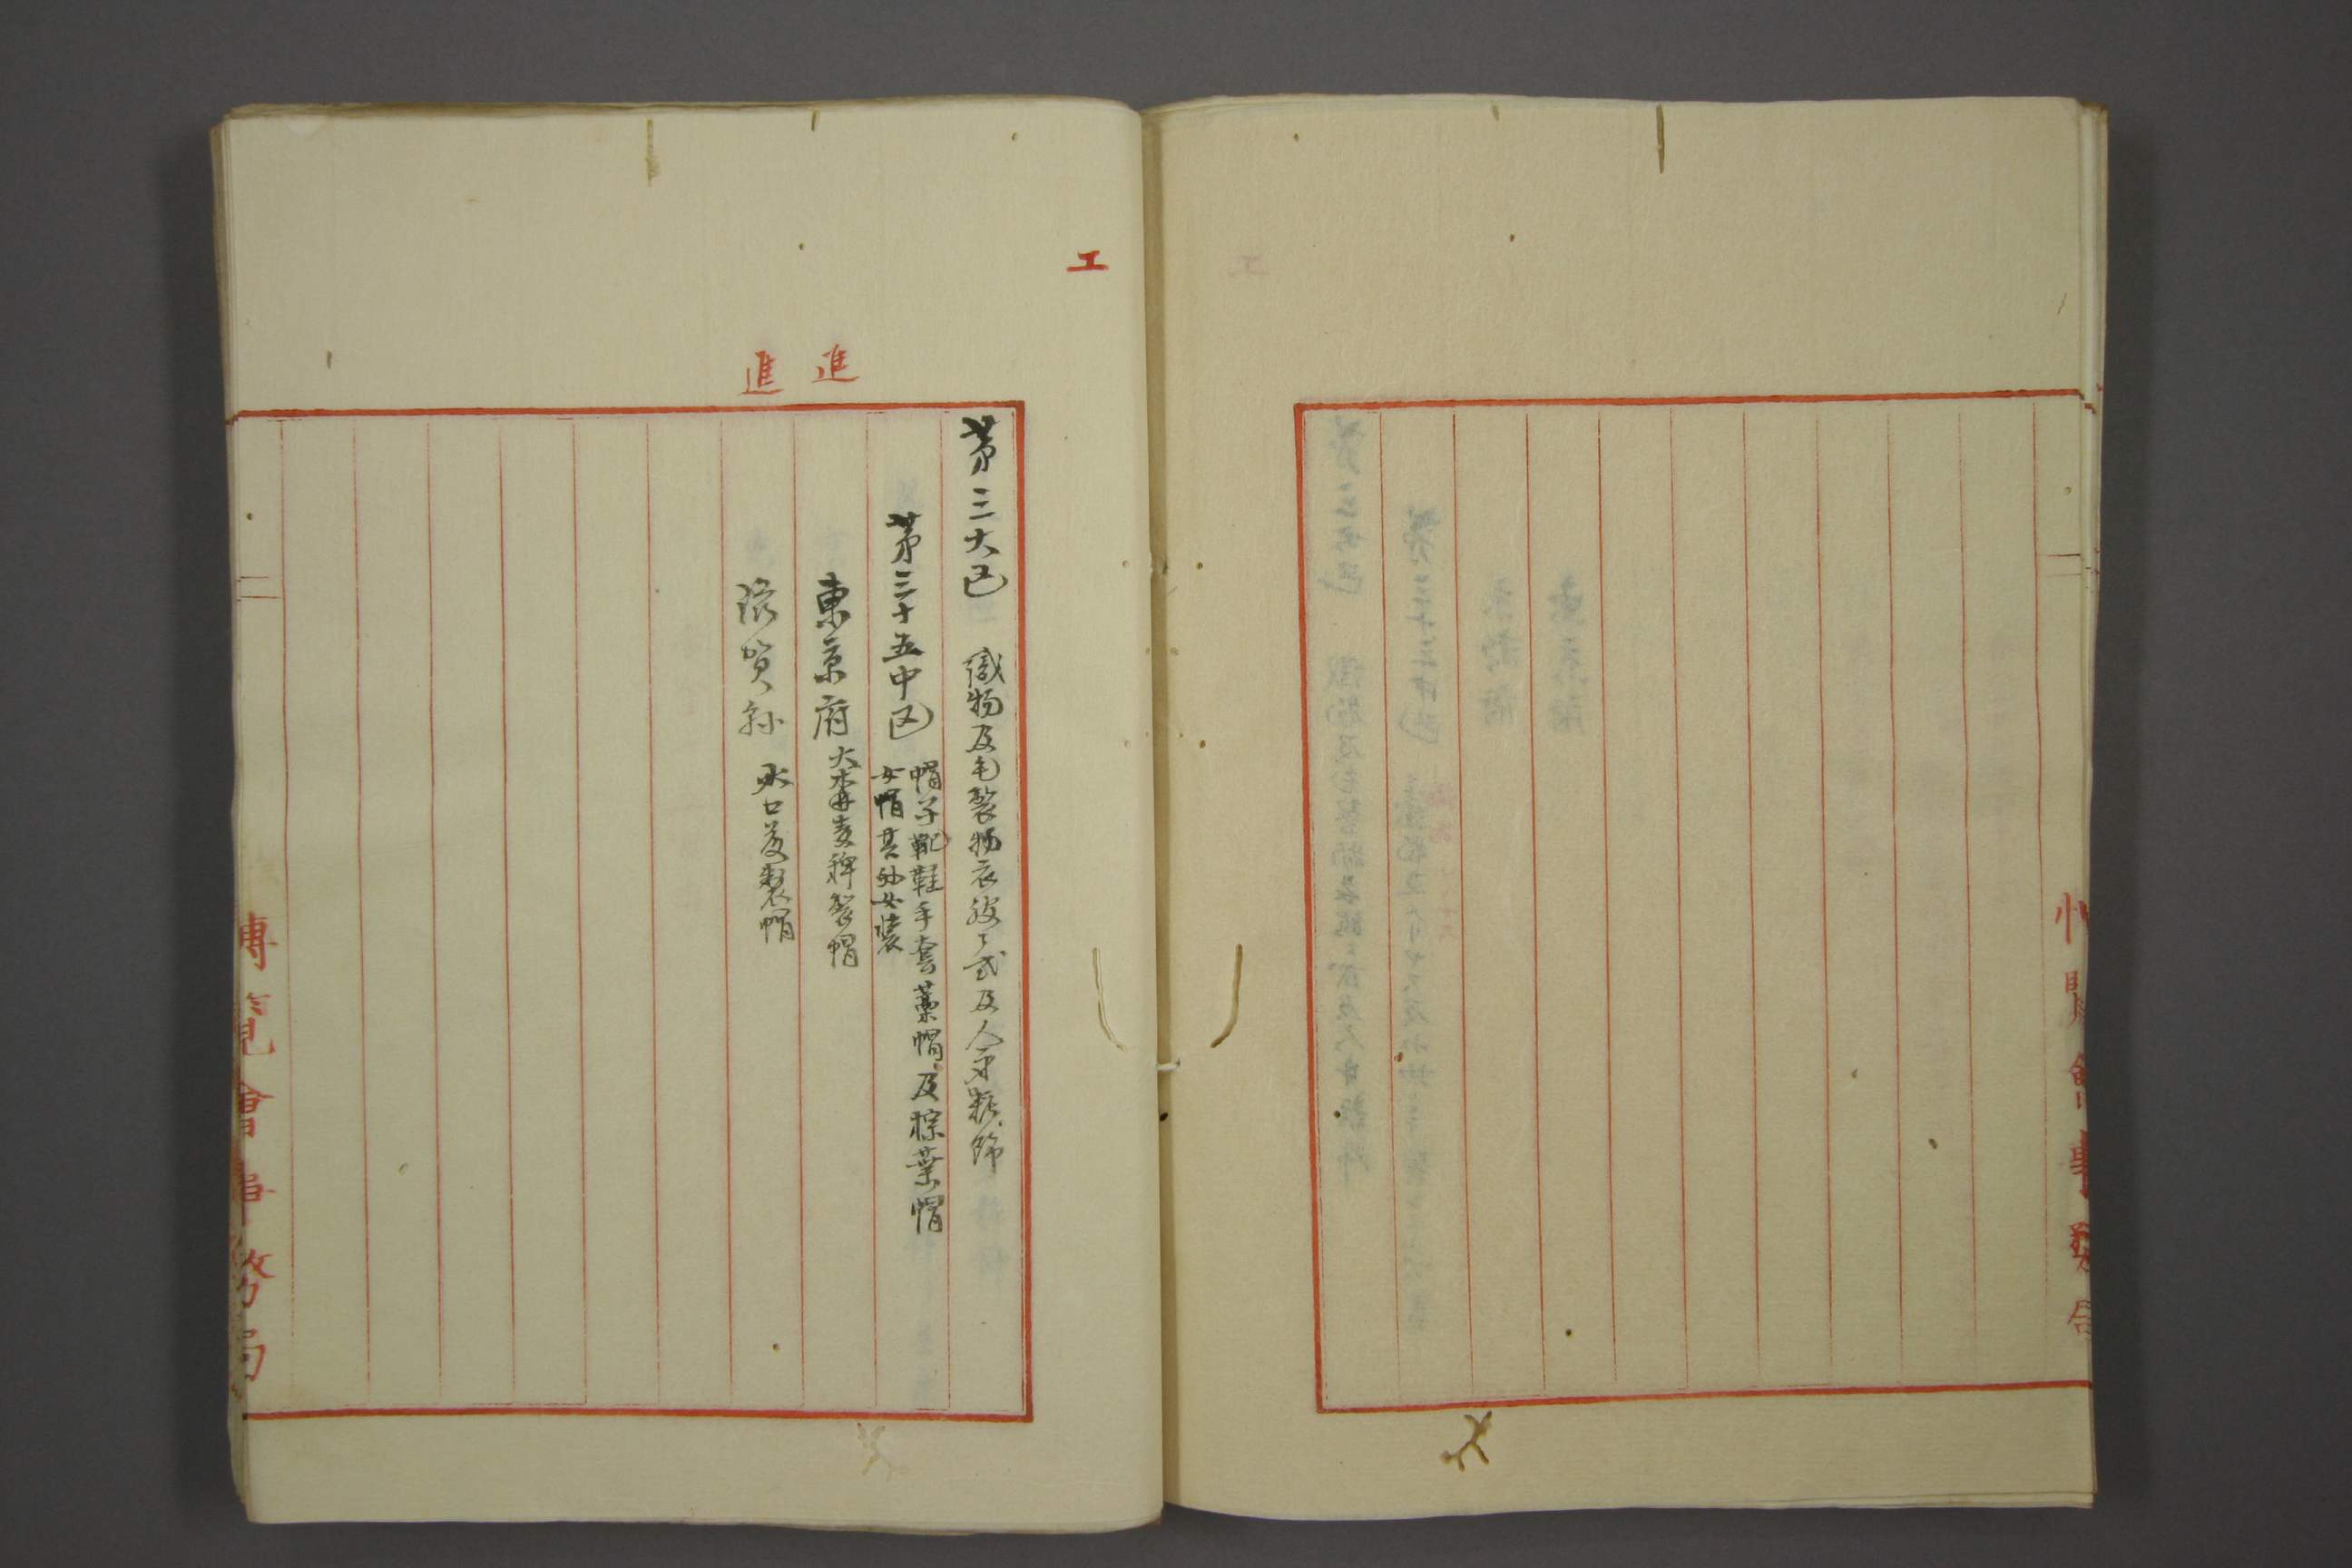 工
進
進
第三大区 織物及毛製物衣服之式及人身粧飾
第三十五中区 帽子靴鞋手套藁帽及棕葉帽
女帽其外女装
東京府 麦稈製帽
滋賀県 水口蔓製帽
博覧會事務局